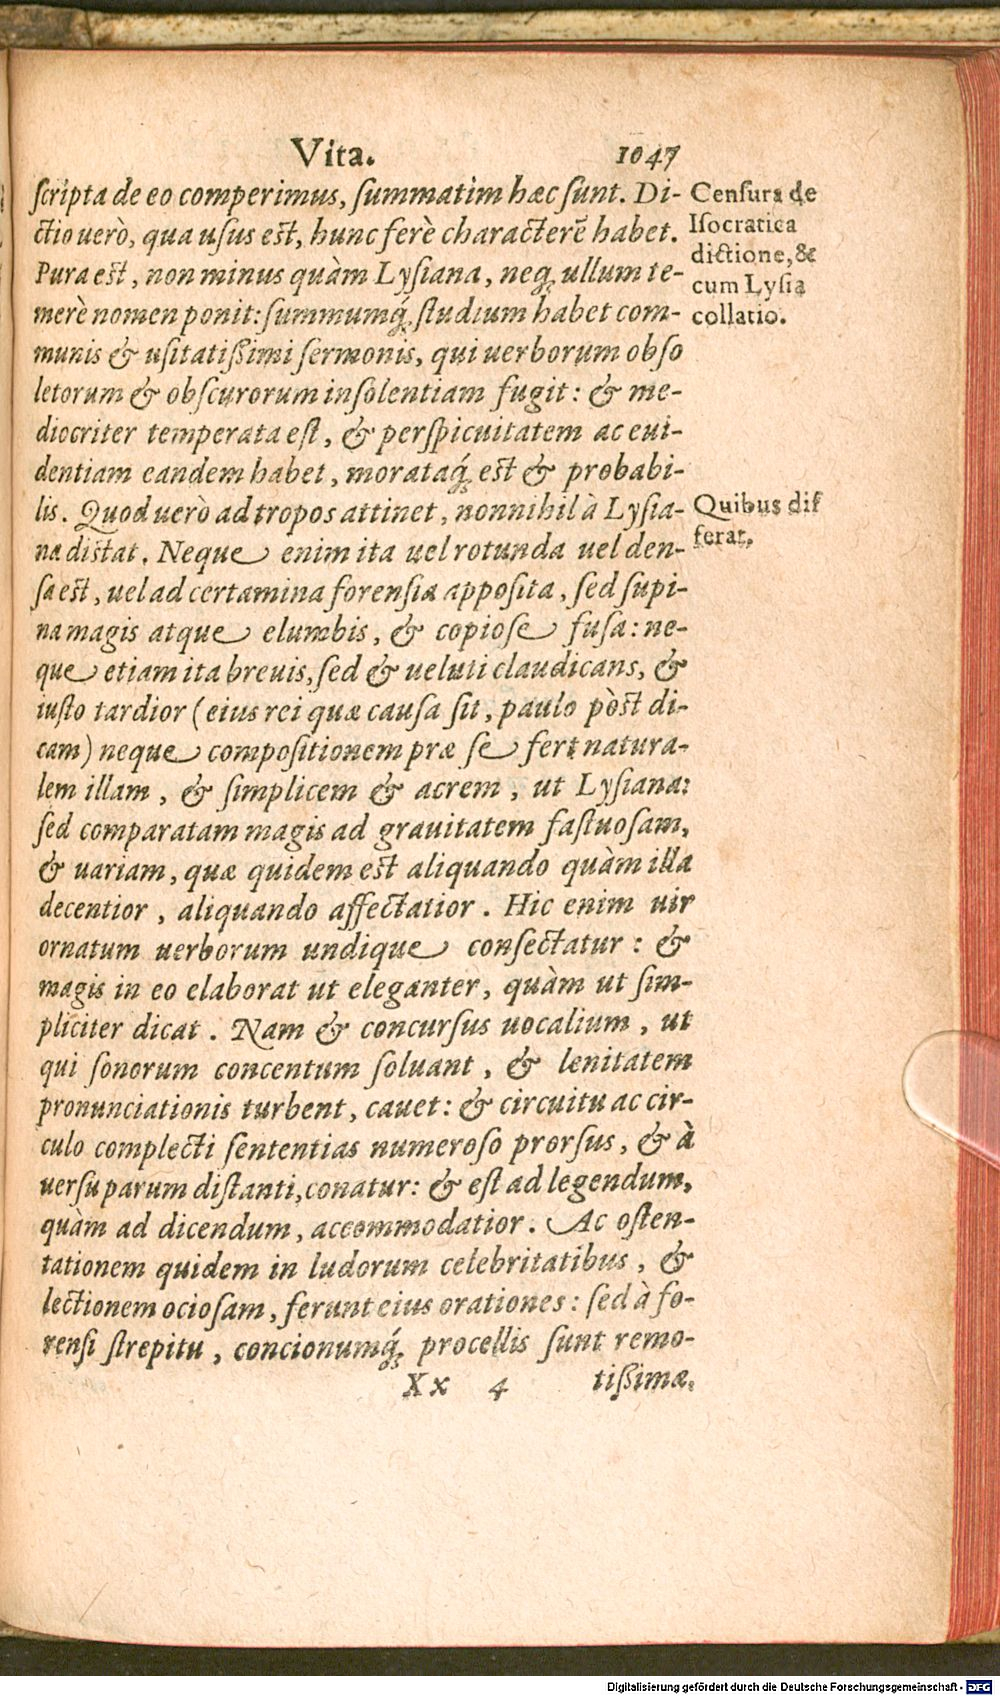 Vita. 1047
ſcripta de eo comperimus, ſummatim hæc ſunt. Di-
ctio uerò, qua uſus eſt, hunc ferè characterē habet.
Pura eſt, non minus quàm Lyſiana, neq; ullum te-
merè nomen ponit: ſummumq́; ſtudium habet com-
munis & uſitatiſſimi ſermonis, qui uerborum obſo
letorum & obſcurorum inſolentiam fugit: & me-
diocriter temperata eſt, & perſpicuitatem ac eui-
dentiam eandem habet, morataq́; eſt & probabi-
lis. Quod uerò ad tropos attinet, nonnihil à Lyſia-
na diſtat. Neque enim ita uel rotunda uel den-
ſa eſt, uel ad certamina forenſia appoſita, ſed ſupi-
na magis atque elumbis, & copioſe fuſa: ne-
que etiam ita breuis, ſed & ueluti claudicans, &
iuſto tardior (eius rei quæ cauſa ſit, paulo pòſt di-
cam) neque compoſitionem præ ſe fert natura-
lem illam, & ſimplicem & acrem, ut Lyſiana:
ſed comparatam magis ad grauitatem faſtuoſam,
& uariam, quæ quidem eſt aliquando quàm illa
decentior, aliquando affectatior. Hic enim uir
ornatum uerborum undique conſectatur: &
magis in eo elaborat ut eleganter, quàm ut ſim-
pliciter dicat. Nam & concurſus uocalium, ut
qui ſonorum concentum ſoluant, & lenitatem
pronunciationis turbent, cauet: & circuitu ac cir-
culo complecti ſententias numeroſo prorſus, & à
uerſu parum diſtanti, conatur: & eſt ad legendum,
quàm ad dicendum, accommodatior. Ac oſten-
tationem quidem in ludorum celebritatibus, &
lectionem ocioſam, ferunt eius orationes: ſed à fo-
renſi ſtrepitu, concionumq́; procellis ſunt remo-
Xx 4 tiſſimæ.
Cenſura de
Iſocratica
dictione, &
cum Lyſia
collatio.
Quibus dif
ferat.
Digitalisierung gefördert durch die Deutsche Forschungsgemeinschaft - DFG